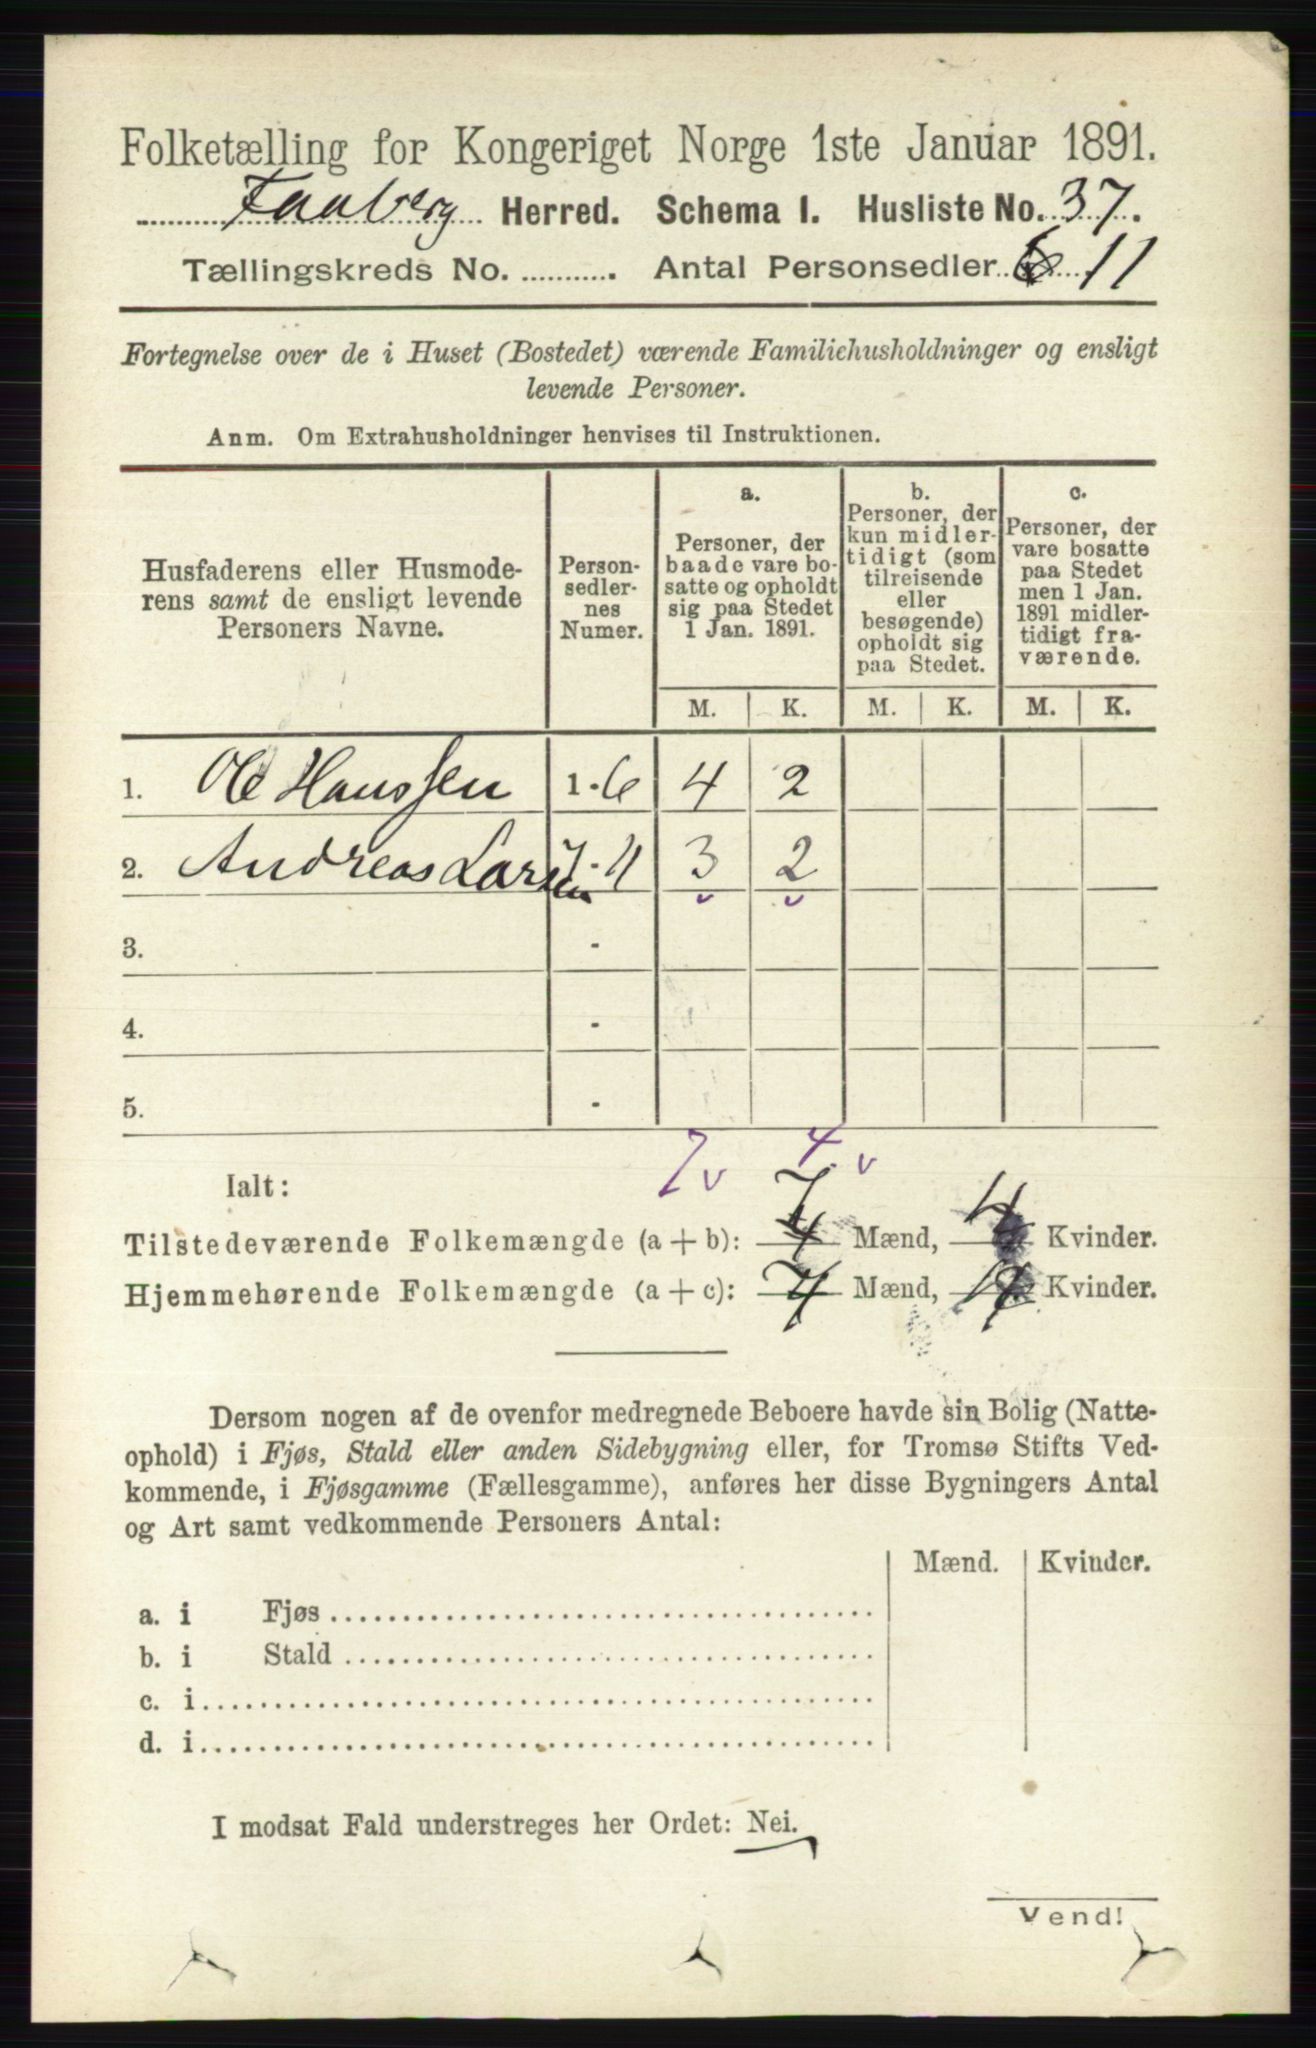 Folketælling for Kongeriget Norge 1ste Januar 1891.
Faaberg Herred. Schema I. Husliste No. 37.
Tællingskreds No. ........... Antal Personsedler 11
Fortegnelse over de i Huset (Bostedet) værende Familiehusholdninger og ensligt
levende Personer.
Anm. Om Extrahusholdninger henvises til Instruktionen.
Husfaderens eller Husmode-
rens samt de ensligt levende
Personers Navne.
Person-
sedler-
nes
Numer.
a.
Personer, der
baade vare bo-
satte og opholdt
sig paa Stedet
1 Jan. 1891.
b.
Personer, der
kun midler-
tidigt (som
tilreisende
eller
besøgende)
opholdt sig
paa Stedet.
c.
Personer, der
vare bosatte
paa Stedet
men 1 Jan.
1891 midler-
tidigt fra-
værende.
M. K. M. K. M. K.
1. Ole Hanssen 1-6 4 2
2. Andreas Larsen 7-11 3 2
3. -
4. -
5. -
7 v 4 v
Ialt:
Tilstedeværende Folkemængde (a + b): 7 Mænd, 4 Kvinder.
Hjemmehørende Folkemængde (a + c): 7 Mænd, 4 Kvinder.
Dersom nogen af de ovenfor medregnede Beboere havde sin Bolig (Natte-
ophold) i Fjøs, Stald eller anden Sidebygning eller, for Tromsø Stifts Ved-
kommende, i Fjøsgamme (Fællesgamme), anføres her disse Bygningers Antal
og Art samt vedkommende Personers Antal:
Mænd. Kvinder.
a. i Fjøs
b. i Stald
c. i
d. i
I modsat Fald understreges her Ordet: Nei.
Vend!